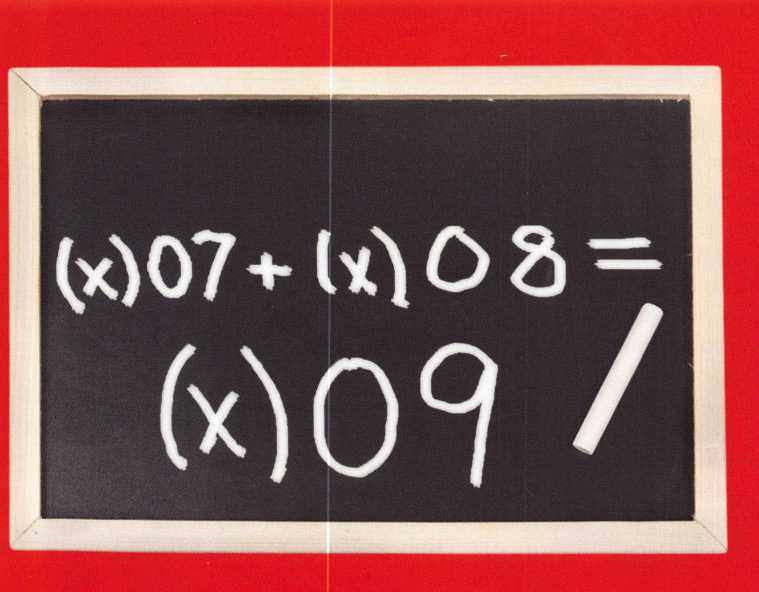 (x)07+(x)08=
(x)09